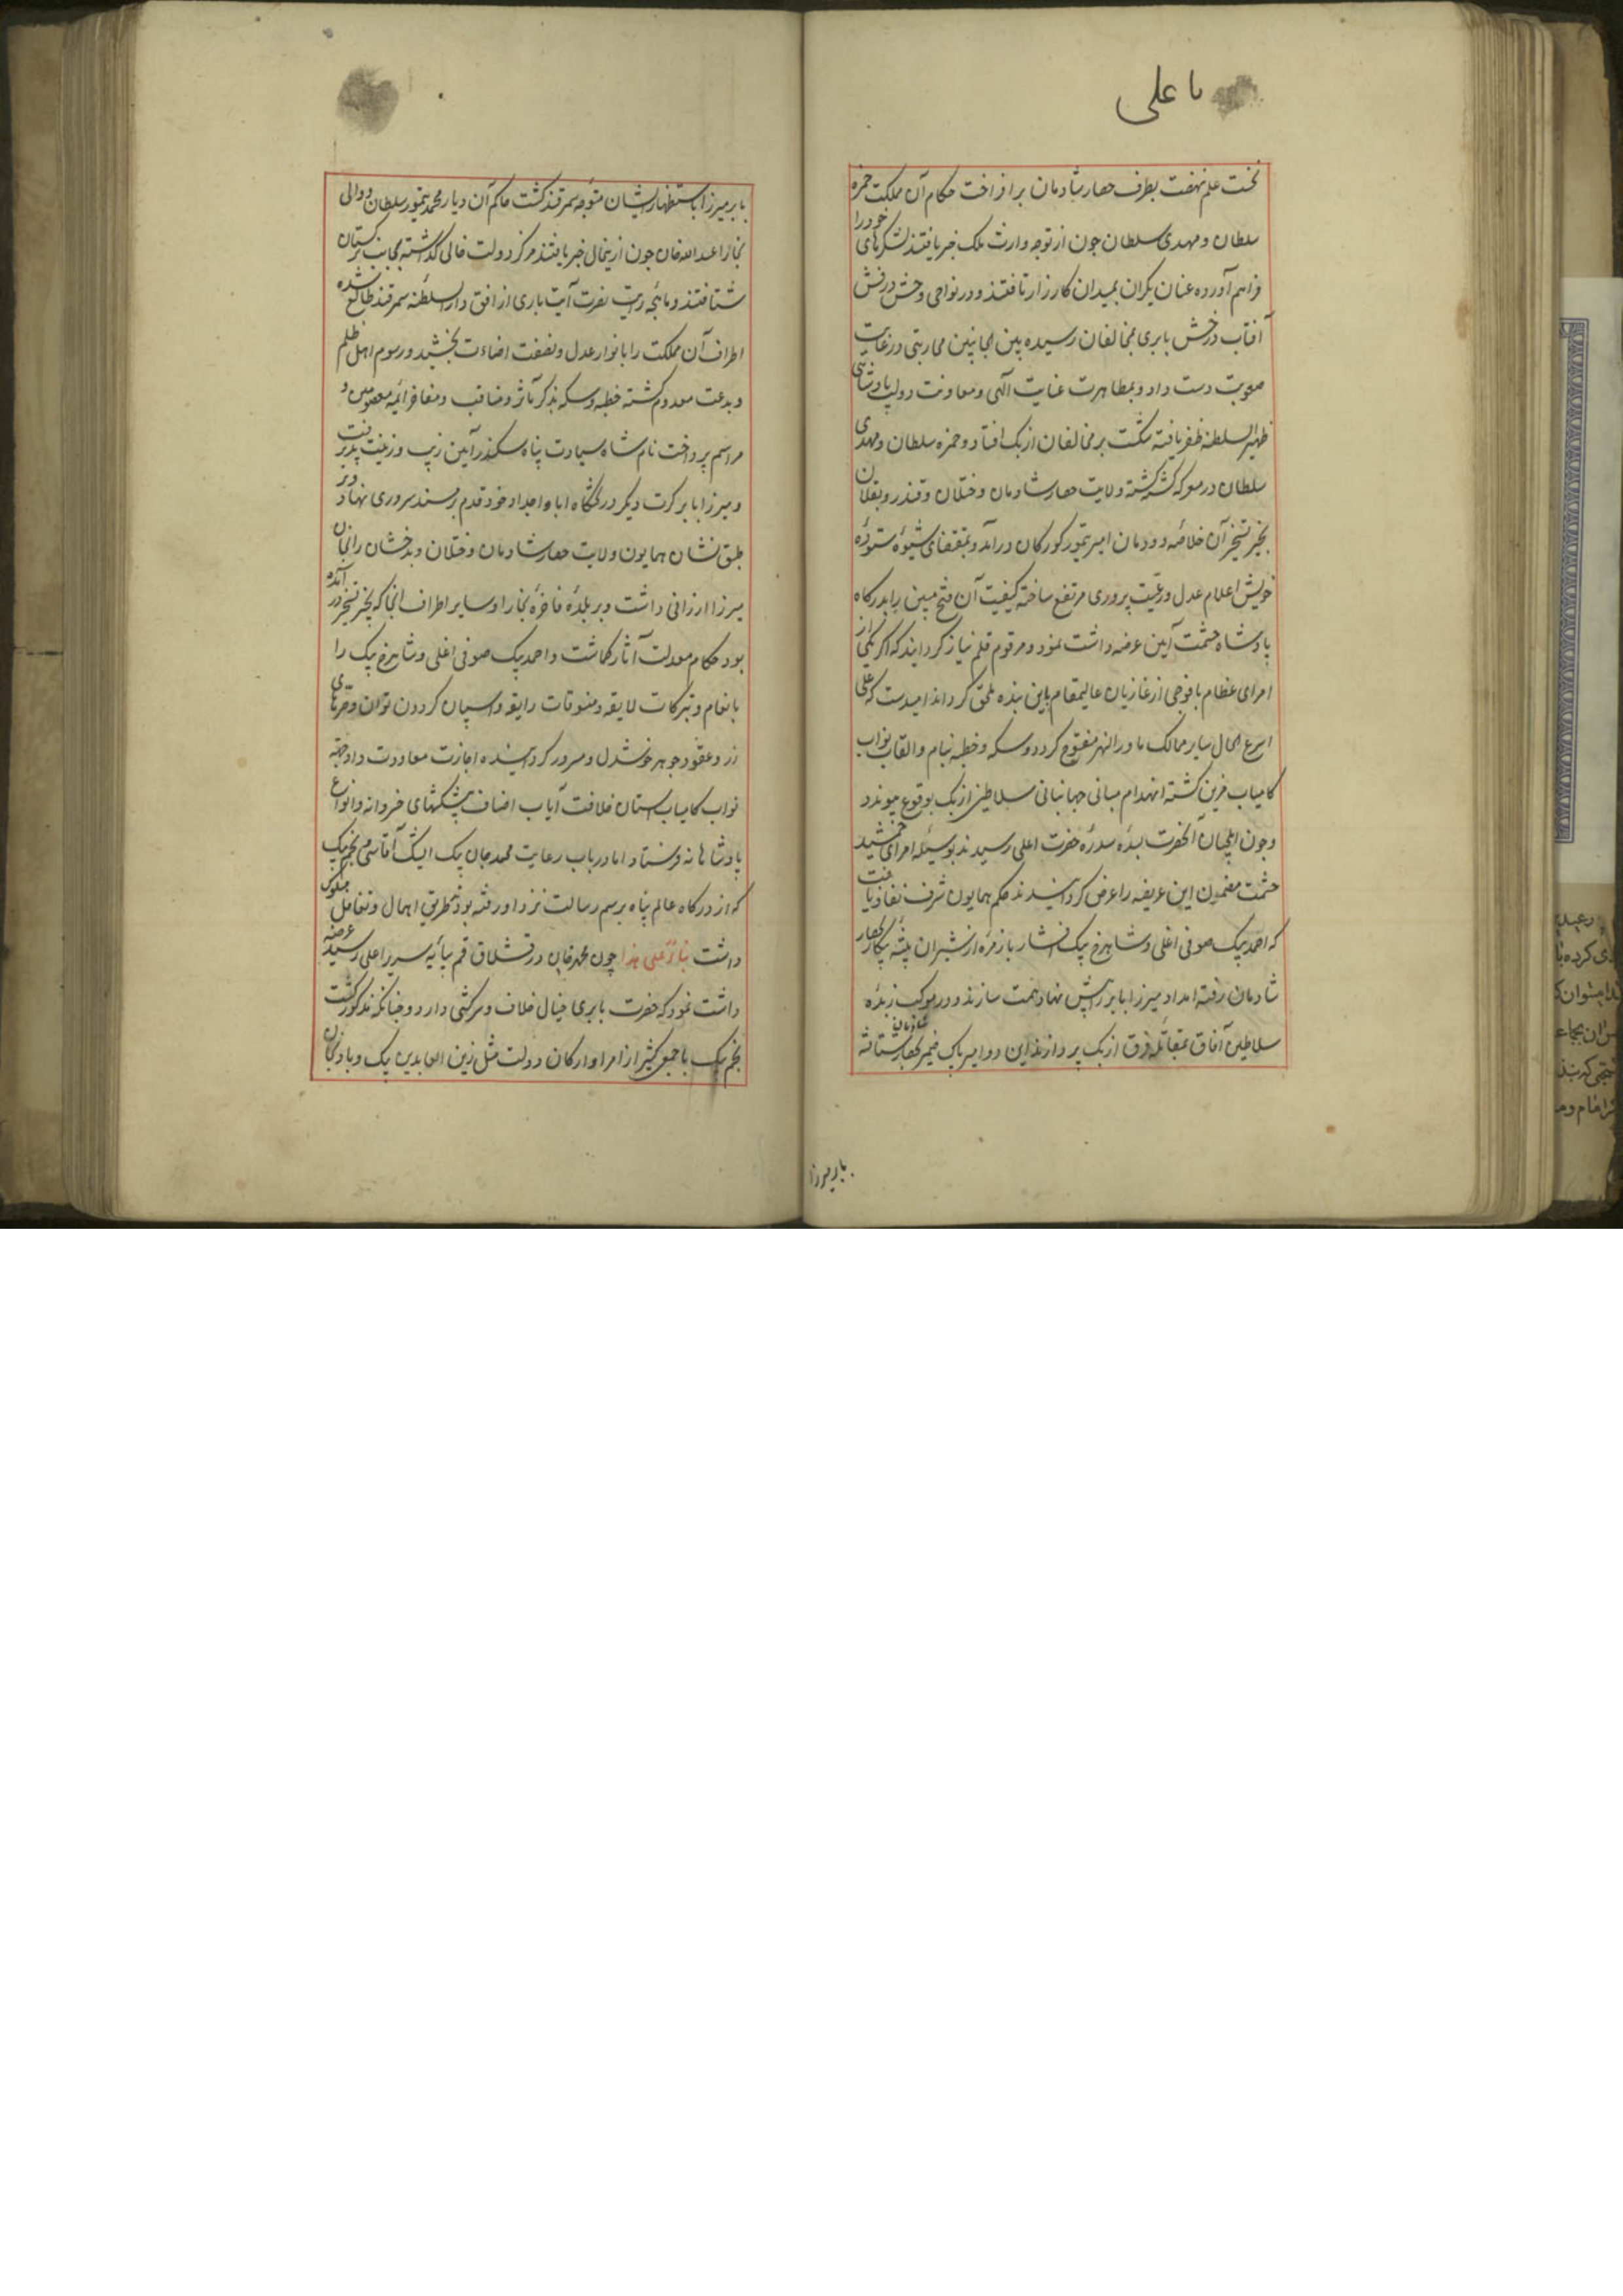 یا علی
نخست علم نهضت بطرف حصار شادمان برافراخت حکام آن مملکت حمزه
سلطان و مهدی سلطان چون از توجه وارث ملک خبر یافتند لشکرهای خود را
فراهم آورده عنان یکران بمیدان کارزار تافتند و در نواحی وخش درفش
آفتاب درخش بابری بمخالفان رسیده بین الجانبین محاربتی در غایت
صعوبت دست داد و بمظاهرت عنایت الهی و معاونت دولت پادشاهی
ظهیر السلطنه ظفر یافته شکست بر مخالفان ازبک افتاد و حمزه سلطان و مهدی
سلطان در معرکه کشته گشته ولایت حصار شادمان و ختلان و قندز و بقلان
بحیز تسخیر آن خلاصه دودمان امیر تیمور کورکان درآمد و بمقتضای شیوه ستوده
خویش اعلام عدل و رعیت پروری مرتفع ساخته کیفیت آن فتح مبین را بدرگاه
پادشاه حشمت آیین عرضه داشت نمود و مرقوم قلم نیاز گردانید که اگر یکی از
امرای عظام با فوجی از غازیان عالیمقام باین بنده ملحق گرداند امیدست که علی
اسرع الحال سایر ممالک ماوراالنهر مفتوح گردد و سکه و خطبه بنام و القاب نواب
کامیاب قرین گشته انهدام مبانی جهانبانی سلاطین ازبک بوقوع پیوندد
و چون ایلچیان آنحضرت بسده سدره حضرت اعلی رسیدند بوسیله امرای جمشید
حشمت مضمون این عریضه را عرض گردانیدند حکم همایون شرف نفاذ یافت
که احمد بیک صوفی اغلی و شاهرخ بیک افشار با زمره از شیران بیشه پیکار بحصار
شادمان رفته امداد میرزا بابر را پیش نهاد همت سازند و در موکب زبده
سلاطین آفاق بمقاتله فرق ازبک پردازند این دو امیر پاک ضمیر بحصار شادمان شتافته
بابر میرزا
بابر میرزا باستظهار ایشان متوجه سمرقند گشت حاکم آن دیار محمد تیمور سلطان و والی
بخارا عبدالله خان چون ازینحال خبر یافتند مرکز دولت خالی گذاشته بجانب ترکستان
شتافتند و ماهچه رایت نصرت آیت بابری از افق دارالسلطنه سمرقند طالع شده
اطراف آن مملکت را بانوار عدل و نصفت اضاءت بخشید و رسوم اهل ظلم
و بدعت معدوم گشته خطبه و سکه بذکر مآثر و مناقب و مفاخر ائمه معصومین و
مراسم پرداخت نام شاه سیادت پناه سکندر آیین زیب و زینت پذیرفت
و میرزا بابر کرت دیگر در تختگاه اباء و اجداد خود قدم بر مسند سروری نهاد و بر
طبق نشان همایون ولایت حصار شادمان و ختلان و بدخشان را بخان
میرزا ارزانی داشت و بر بلده فاخره بخارا و سایر اطراف انجا که بحیز تسخیر درآمده
بود حکام معدلت آثار گماشت و احمد بیک صوفی اغلی و شاهرخ بیک را
بانعام و تبرکات لایقه و متنوقات رایقه و اسپان گردون توان و صرتهای
زر و عقود جوهر خوشدل و مسرور گردانیده اجازت معاودت داد و جهته
نواب کامیاب استان خلافت آیاب اصناف پیشکشهای خسروانه و انواع
پادشاهانه فرستاد اما در باب رعایت محمد جان بیک ایشک آقاسی نجم بیک
که از درگاه عالم پناه برسم رسالت نزد او رفته بود بطریق اهمال و تغافل سلوک
داشت بناءً علی هذا چون محمد خان در قشلاق قم بپایه سریر اعلی رسید عرضه
داشت نمود که حضرت بابری خیال خلاف و سرکشی دارد و چنانکه مذکور گشت
نجم بیک با جمعی کثیر از امرا و ارکان دولت مثل زین العابدین بیک و بادنجان